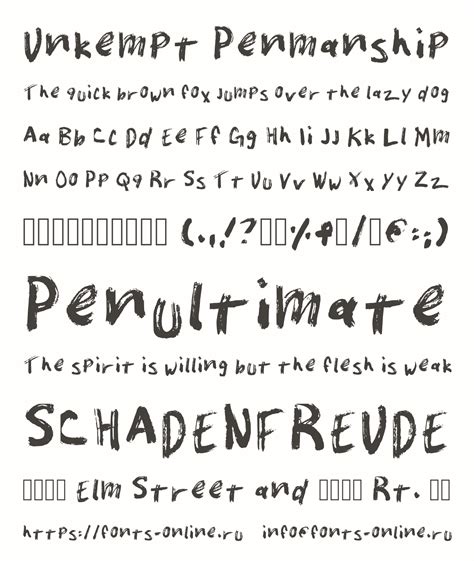 Unkempt Penmanship
The quick brown fox jumps over the lazy dog
Aa Bb Cc Dd Ee Ff Gg Hh Ii Jj Kk Ll Mm
Nn Oo Pp Qq Rr Ss Tt Uu Vv Ww Xx Yy Zz
□□□□□□□□□□ (.,!?□□%&□/□@:;)
Penultimate
The spirit is willing but the flesh is weak
SCHADENFREUDE
□□□□ Elm Street and □□□□ Rt. □□
https://fonts-online.ru info@fonts-online.ru